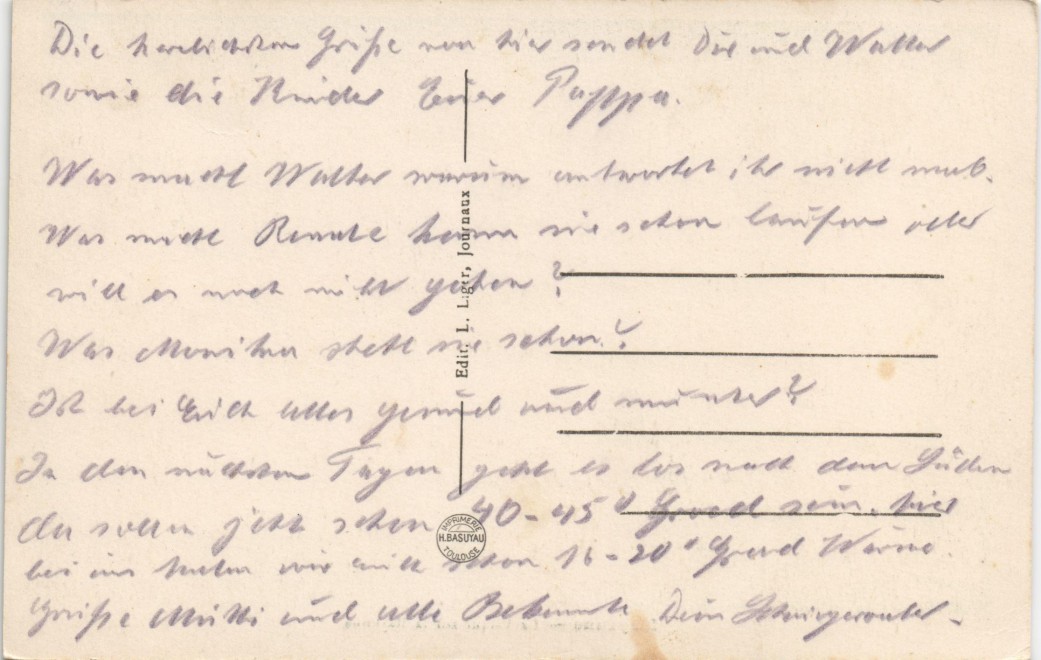 Die herzlichsten Grüße von hier sendet Dir und Walter
sowie die Kinder Euer Pappa.
Was macht Walter warum antwortet ihr nicht mal.
Was macht Renate kann sie schon laufen oder
will es noch nicht gehen?
Was Monika steht sie schon?
Ist bei Erich alles gesund und munter?
In den nächsten Tagen geht es los nach dem Süden
da sollen jetzt schon 40-45° Grad sein, hier
bei uns haben wir auch schon 16-20° Grad Wärme.
Grüße Mutti und alle Bekannte Dein Schwiegervater.
Edit. L. Liger, Journaux
IMPRIMERIE
H. BASUYAU
TOULOUSE